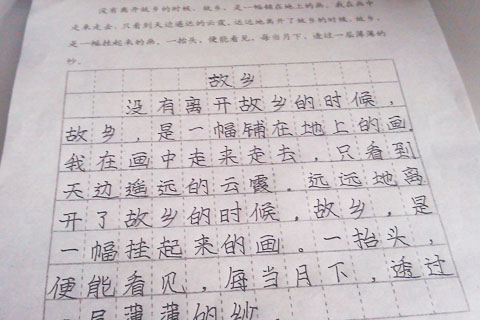 没有离开故乡的时候,故乡,是一幅铺在地上的画,我在画中
走来走去,只看到天边遥远的云霞,远远地离开了故乡的时候,故乡,
是一幅挂起来的画,一抬头,便能看见,每当月下,透过一层薄薄的
纱,
故乡
没有离开故乡的时候,
故乡,是一幅铺在地上的画,
我在画中走来走去,只看到
天边遥远的云霞,远远地离
开了故乡的时候,故乡,是
一幅挂起来的画。一抬头,
便能看见,每当月下,透过
一层薄薄的纱,